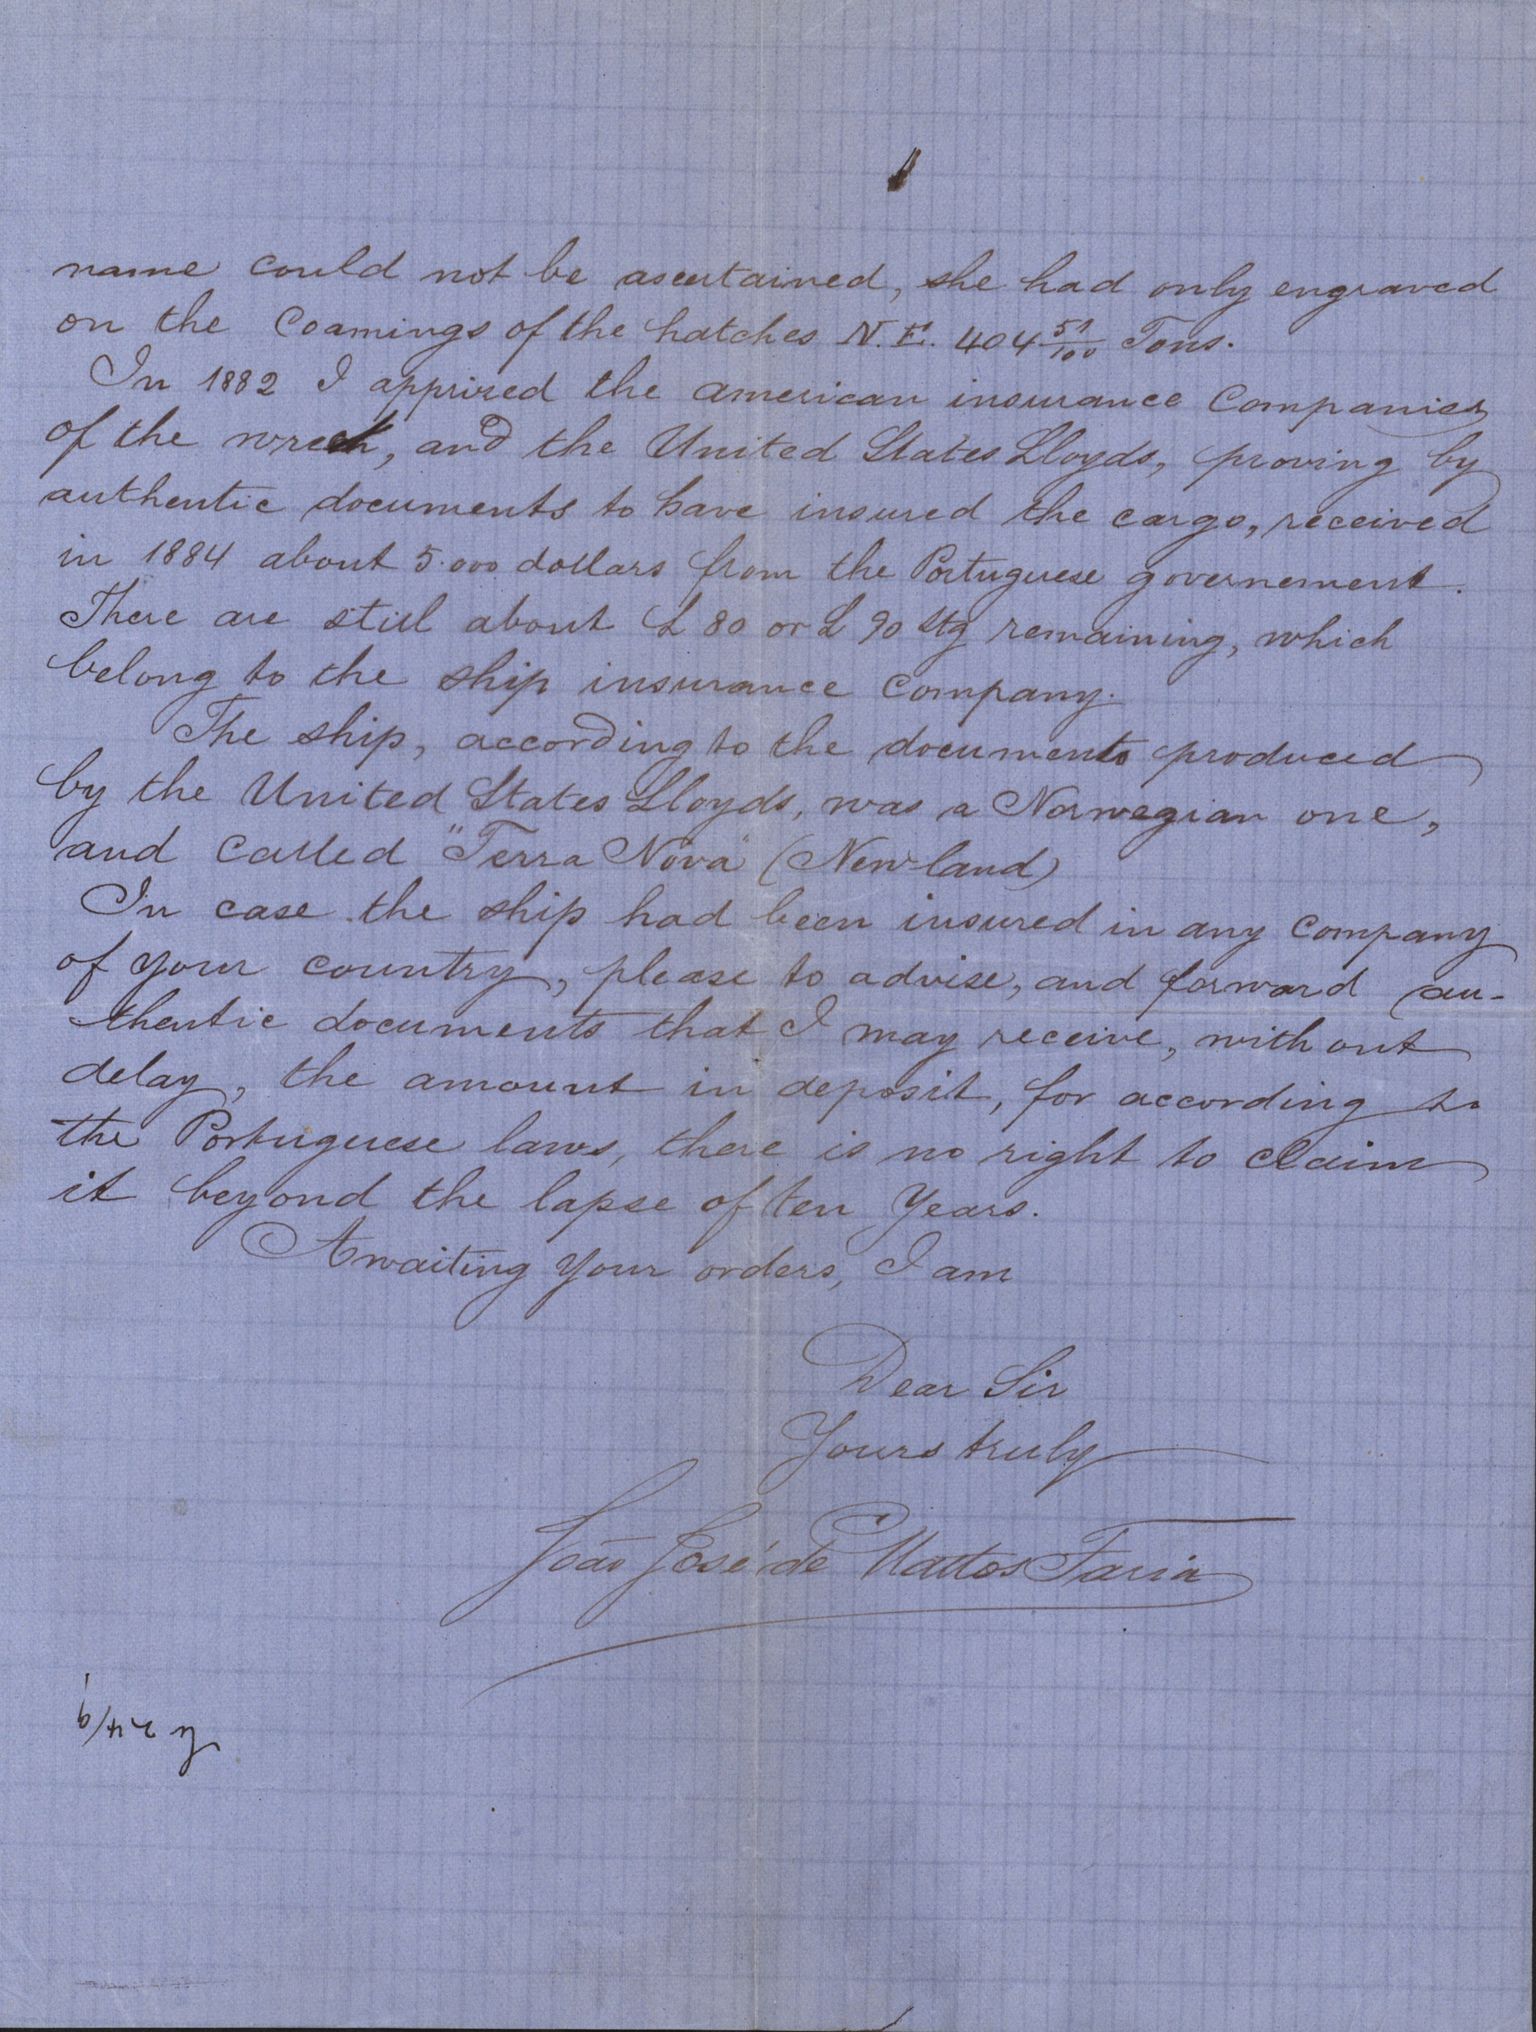 name could not be ascertained, she had only engraved
on the Coamings of the hatches N.E. 404 51/100 Tons.
In 1882 I apprized the American insurance Companies
of the wreck, and the United States Lloyds, proving by
authentic documents to have insured the cargo, received
in 1884 about 5.000 dollars from the Portuguese governement.
There are still about £ 80 or £ 90 Stg remaining, which
belong to the ship insurance Company.
The ship, according to the documents produced
by the United States Lloyds, was a Norwegian one,
and Called "Terra Nova" (New-land)
In case the ship had been insured in any Company
of your country, please to advise, and forward au-
thentic documents that I may receive, without
delay, the amount in deposit, for according to
the Portuguese laws, there is no right to claim
it beyond the lapse of ten years.
Awaiting your orders, I am
Dear Sir
Yours truly
João José de Mattos Faria
24/9